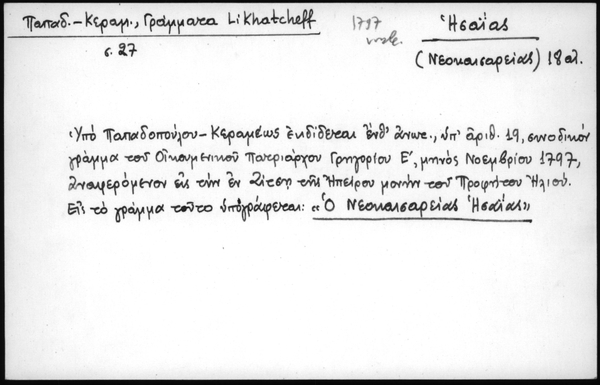 Παπαδ.-Κεραμ., Γράμματα Likhatcheff
σ. 27
1797
Νοεμ.
Ἡσαΐας
(Νεοκαισαρείας) 18 αἰ.
Ὑπό Παπαδοπούλου-Κεραμέως ἐκδίδεται ἔνθ' ἄνωτ., ὑπ' ἀριθ. 19, συνοδικόν
γράμμα τοῦ Οἰκουμενικοῦ Πατριάρχου Γρηγορίου Ε΄, μηνός Νοεμβρίου 1797,
ἀναφερόμενον εἰς τήν ἐν Ζίτσῃ τῆς Ἠπείρου μονήν τοῦ Προφήτου Ἠλιού.
Εἰς τό γράμμα τοῦτο ὑπογράφεται: «Ὁ Νεοκαισαρείας Ἡσαΐας»